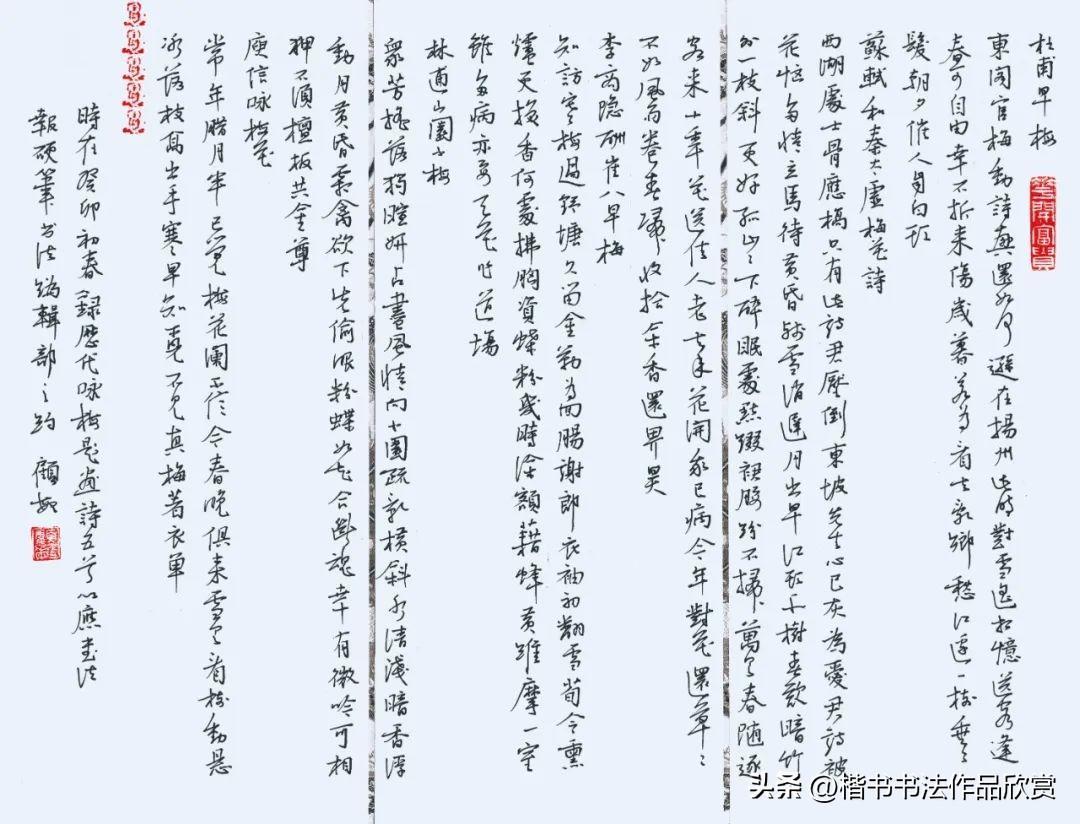 杜甫早梅
東閣官梅動詩興還如何遜在揚州此時對雪遙相憶送客逢
春可自由幸不折来傷歲暮若為看去亂鄉愁江邊一樹垂垂
髮朝夕催人自白頭
蘇軾和秦太虛梅花詩
西湖處士骨應槁只有此詩君壓倒東坡先生心已灰為愛君詩被
花惱多情立馬待黃昏殘雪消遲月出早江頭千樹春欲暗竹
外一枝斜更好孤山山下醉眠處點綴裙腰紛不掃萬里春隨逐
客来十年花送佳人老去年花開我已病今年對花還草草
不如風雨卷春歸收拾餘香還畀昊
李商隱酬崔八早梅
知訪寒梅過野塘久留金勒為回腸謝郎衣袖初翻雪荀令熏
爐更換香何處拂胸資蝶粉幾時塗額藉蜂黃維摩一室
雖多病亦要天花作道場
林逋山園小梅
衆芳搖落獨暄妍占盡風情向小園疏影横斜水清淺暗香浮
動月黃昏霜禽欲下先偷眼粉蝶如知合斷魂幸有微吟可相
狎不須檀板共金尊
庾信咏梅花
常年臘月半已覺梅花闌不信今春晚俱来雪里看樹動懸
冰落枝高出手寒早知覓不見真梅著衣單
時在癸卯初春錄歷代咏梅題畫詩五首以應書法
報硬筆書法編輯部之約
花開富貴
头条 @楷书书法作品欣赏